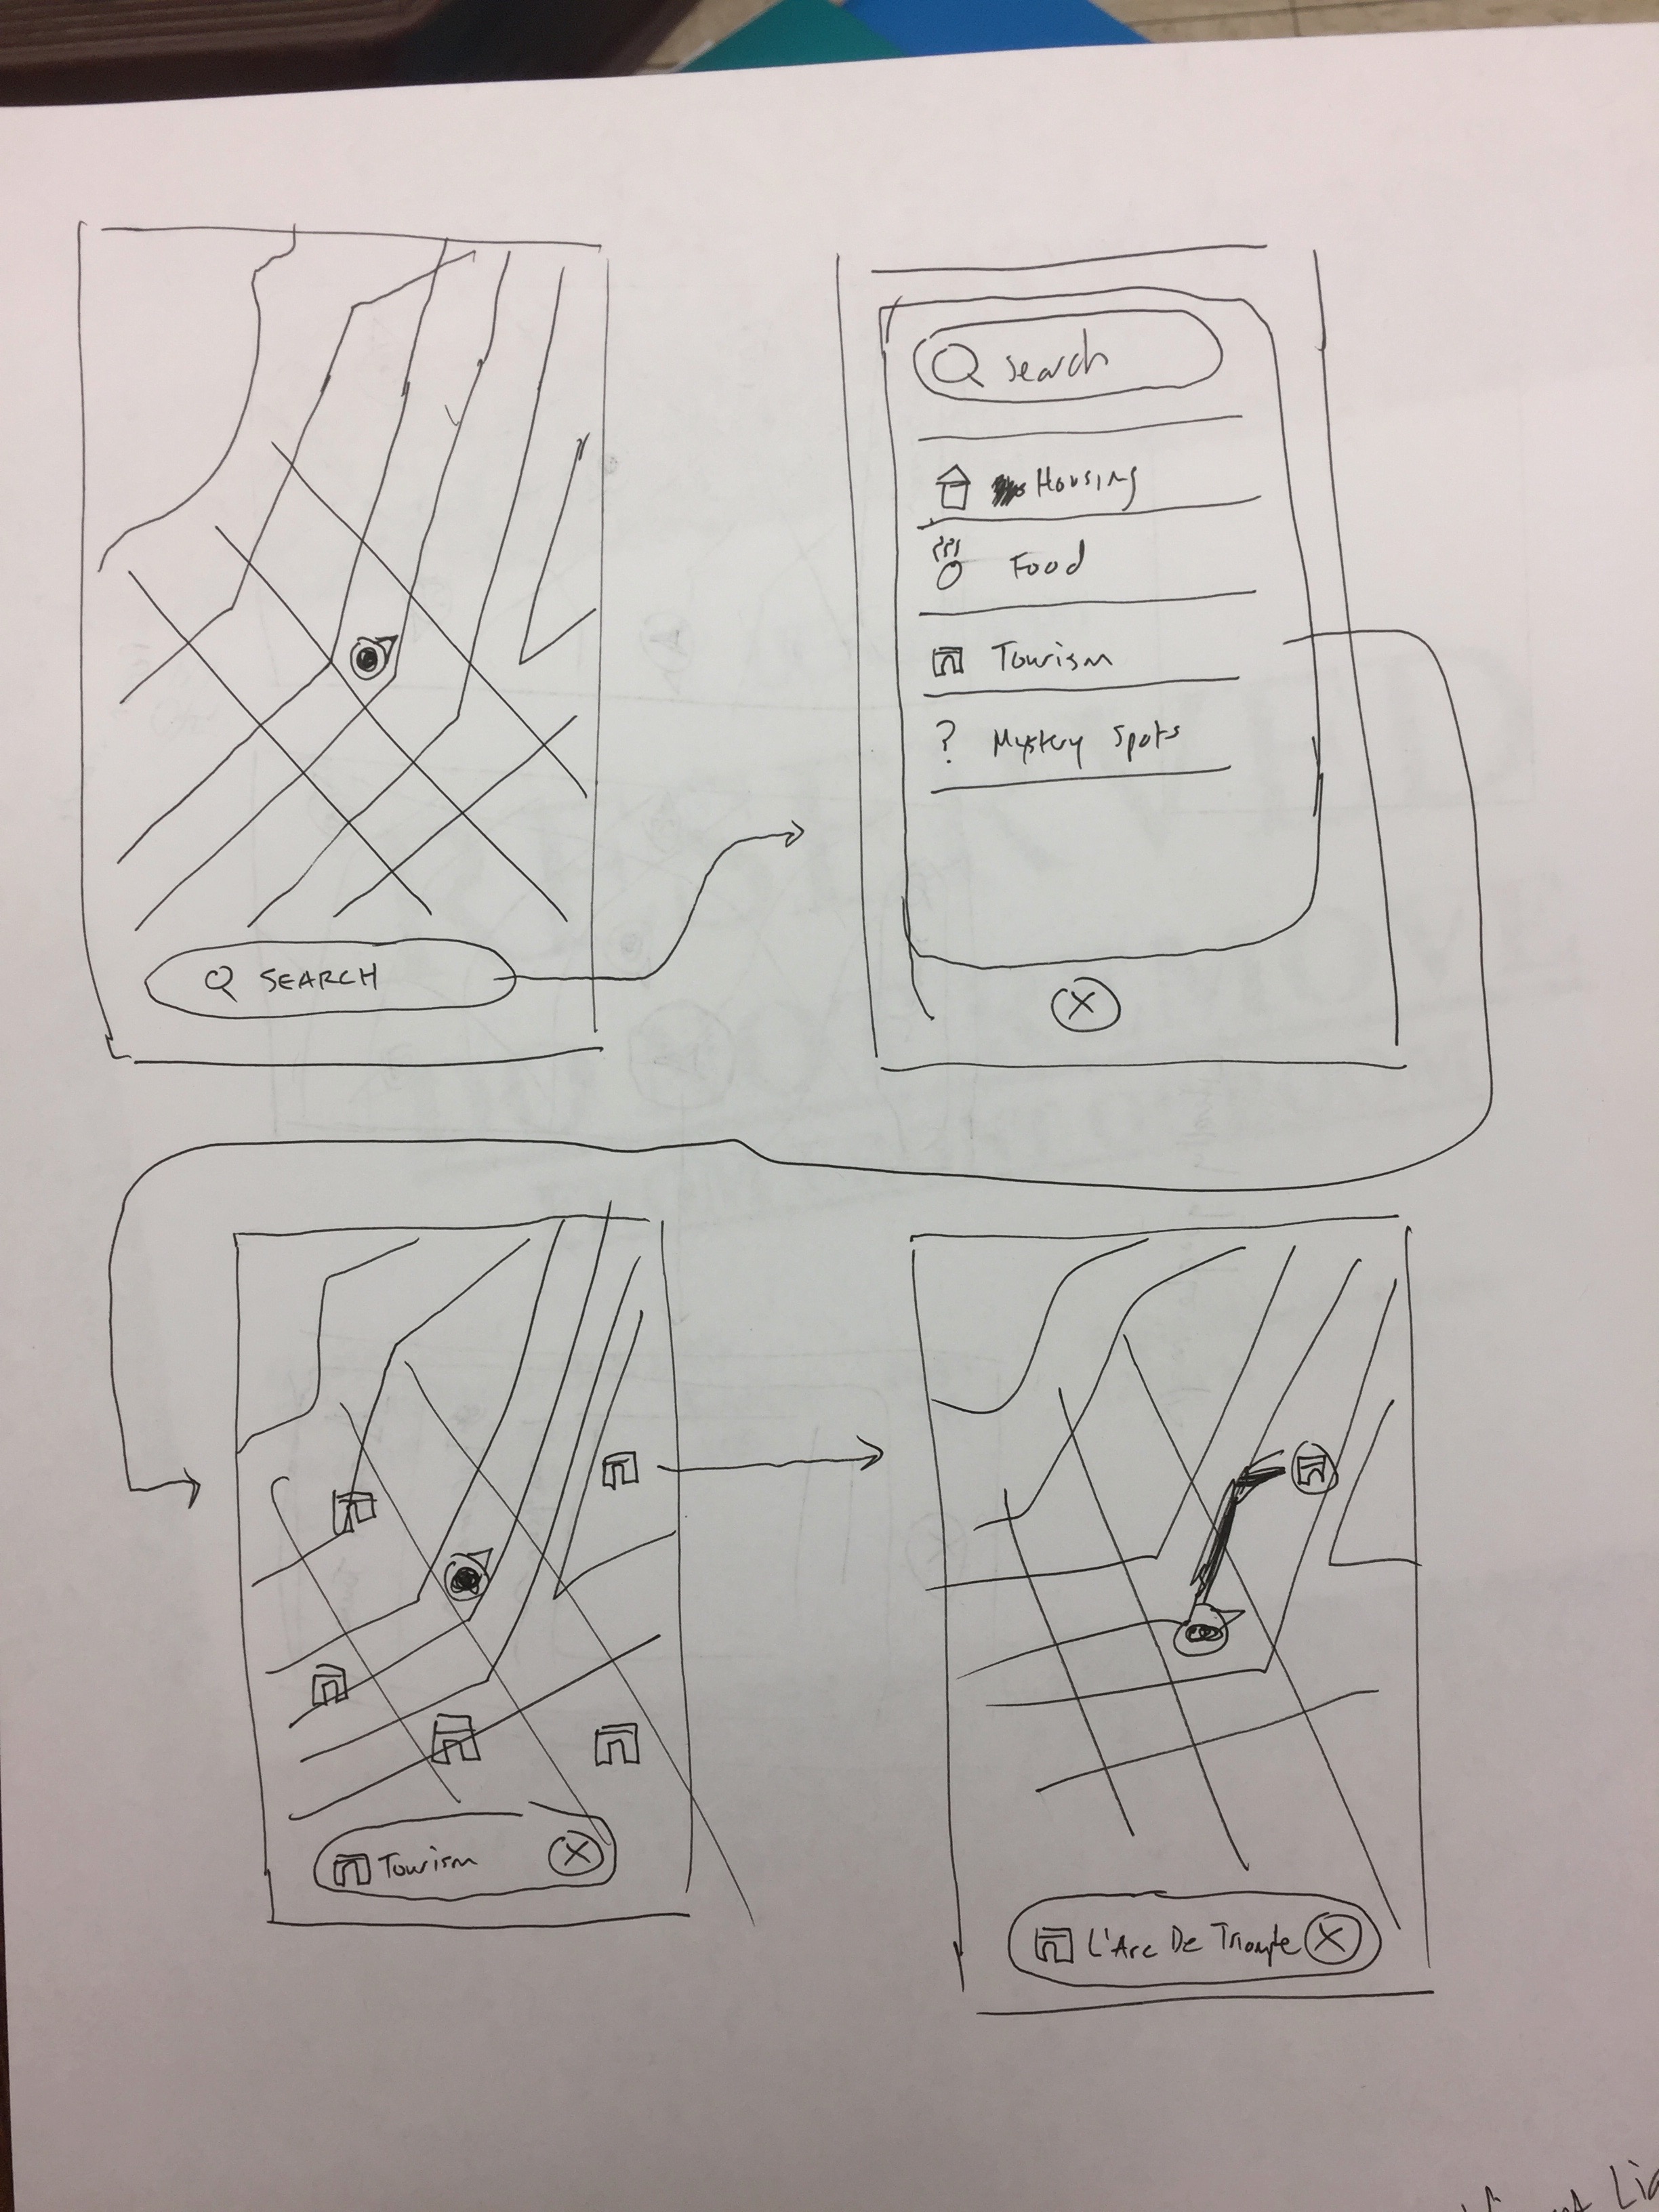 SEARCH
search
Housing
Food
Tourism
? Mystery Spots
Tourism
L'Arc De Triomphe